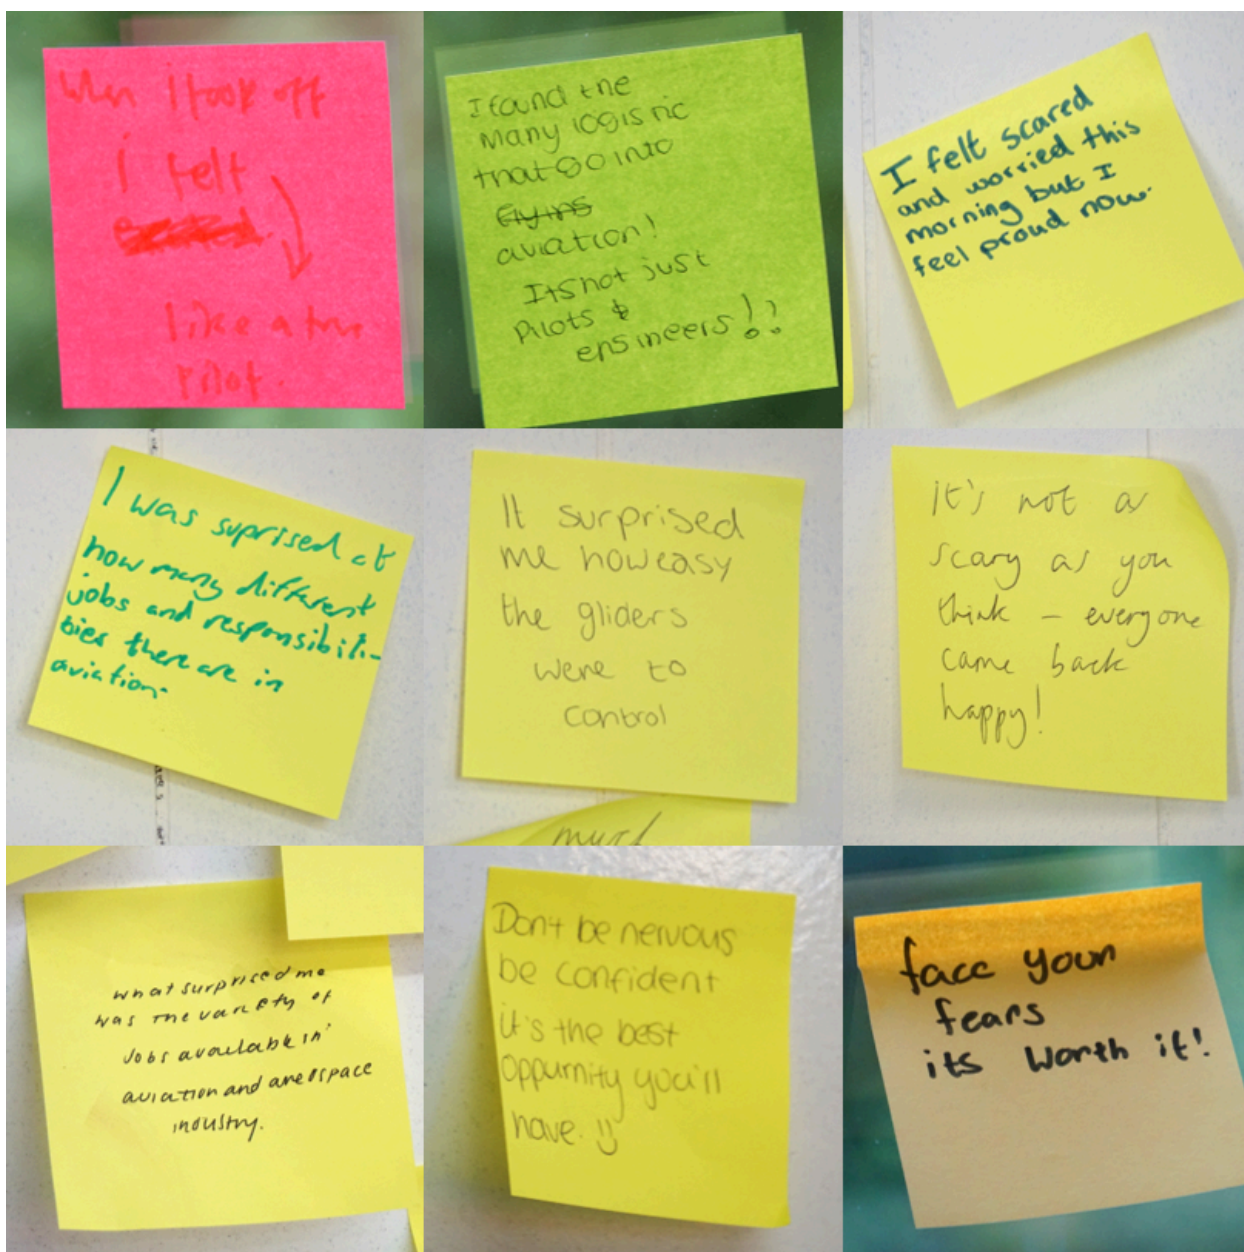 When i took off
i felt
like a true
pilot.
I found the
Many logistic
that go into
flying
aviation!
Its not just
Pilots &
engineers!!
I felt scared
and worried this
morning but I
feel proud now.
I was suprised at
how many different
jobs and responsibili-
ties there are in
aviation.
It surprised
me how easy
the gliders
were to
control
much
it's not a
scary as you
think - everyone
came back
happy!
what surprised me
was the variety of
Jobs available in
aviation and areospace
industry.
Don't be nervous
be confident
it's the best
oppurnity you'll
have. :)
face your
fears
its worth it!